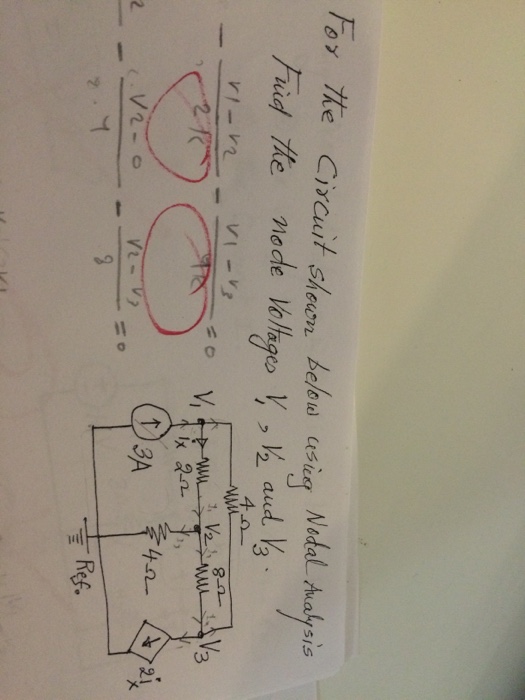 For the Circuit shown below using Nodal Analysis
Find the node Voltages V1, V2 and V3.
- v1-v2 / 2k - v1-v3 / 4k = 0
- v2-0 / 4 - v2-v3 / 8 = 0
4Ω
V1
ix
2Ω
V2
8Ω
V3
3A
4Ω
2ix
Ref.